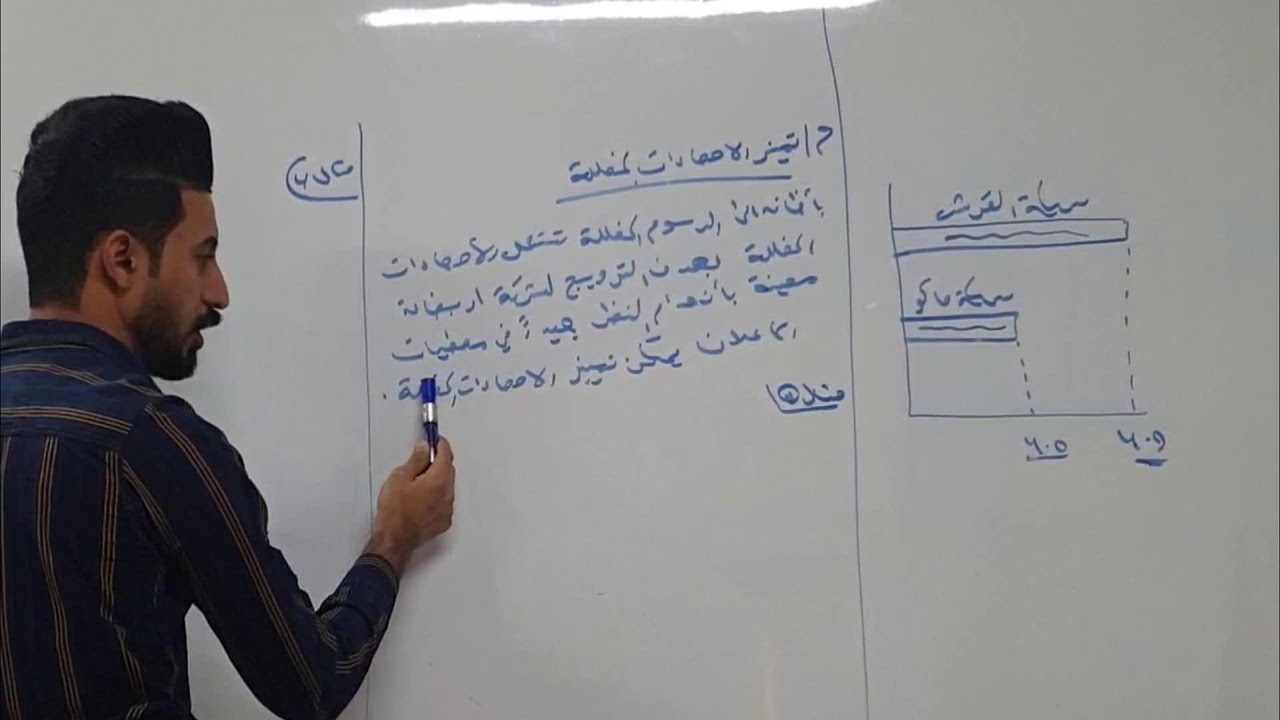 م/ تمييز الاحصاءات المضللة
بالاضافة الى الرسوم المضللة تستعمل الأحصاءات
المضللة بهدف الترويج لشركة او بضاعة
معينة النظر جيداً في معطيات
الاعلان يمكن تمييز الاحصاءات المضللة .
مثال
مثال
سمكة القرش
سمكة
٦٠٥
٦٠٩